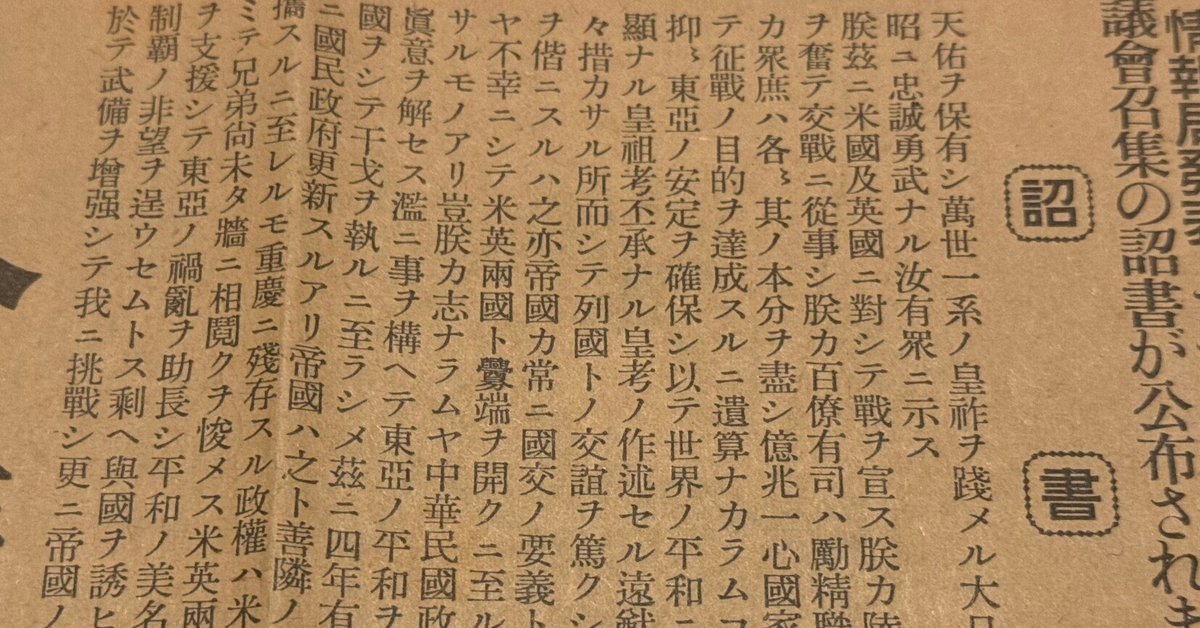 情報局發表
議會召集の詔書が公布されま
詔書
天佑ヲ保有シ萬世一系ノ皇祚ヲ踐メル大日
昭ニ忠誠勇武ナル汝有眾ニ示ス
朕茲ニ米國及英國ニ對シテ戰ヲ宣ス朕カ陸
ヲ奮テ交戰ニ從事シ朕カ百僚有司ハ勵精職
カ眾庶ハ各〻其ノ本分ヲ盡シ億兆一心國家
テ征戰ノ目的ヲ達成スルニ遺算ナカラムコ
抑〻東亞ノ安定ヲ確保シ以テ世界ノ平和ニ
顯ナル皇祖考不承ナル皇考ノ作述セル遠猷
々措カサル所而シテ列國トノ交誼ヲ篤クシ
ヲ偕ニスルハ之亦帝國カ常ニ國交ノ要義ト
ヤ不幸ニシテ米英兩國ト釁端ヲ開クニ至ル
サルモノアリ豈朕カ志ナラムヤ中華民國政
眞意ヲ解セス濫ニ事ヲ構ヘテ東亞ノ平和ヲ
國ヲシテ干戈ヲ執ルニ至ラシメ茲ニ四年有
ニ國民政府更新スルアリ帝國ハ之ト善隣ノ
攜スルニ至レルモ重慶ニ殘存スル政權ハ米
ミテ兄弟尙未タ牆ニ相鬩クヲ悛メス米英兩
ヲ支援シテ東亞ノ禍亂ヲ助長シ平和ノ美名
制覇ノ非望ヲ逞ウセムトス剩ヘ與國ヲ誘ヒ
於テ武備ヲ增强シテ我ニ挑戰シ更ニ帝國ノ